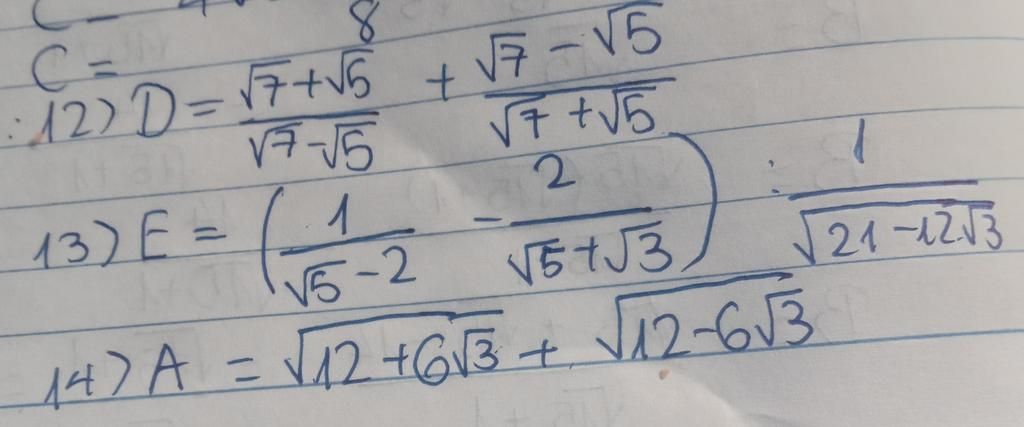 C =
8
12) D = (√7+√5)/(√7-√5) + (√7-√5)/(√7+√5)
13) E = (1/(√5-2) - 2/(√5+√3)) : 1/√(21-12√3)
14) A = √(12+6√3) + √(12-6√3)